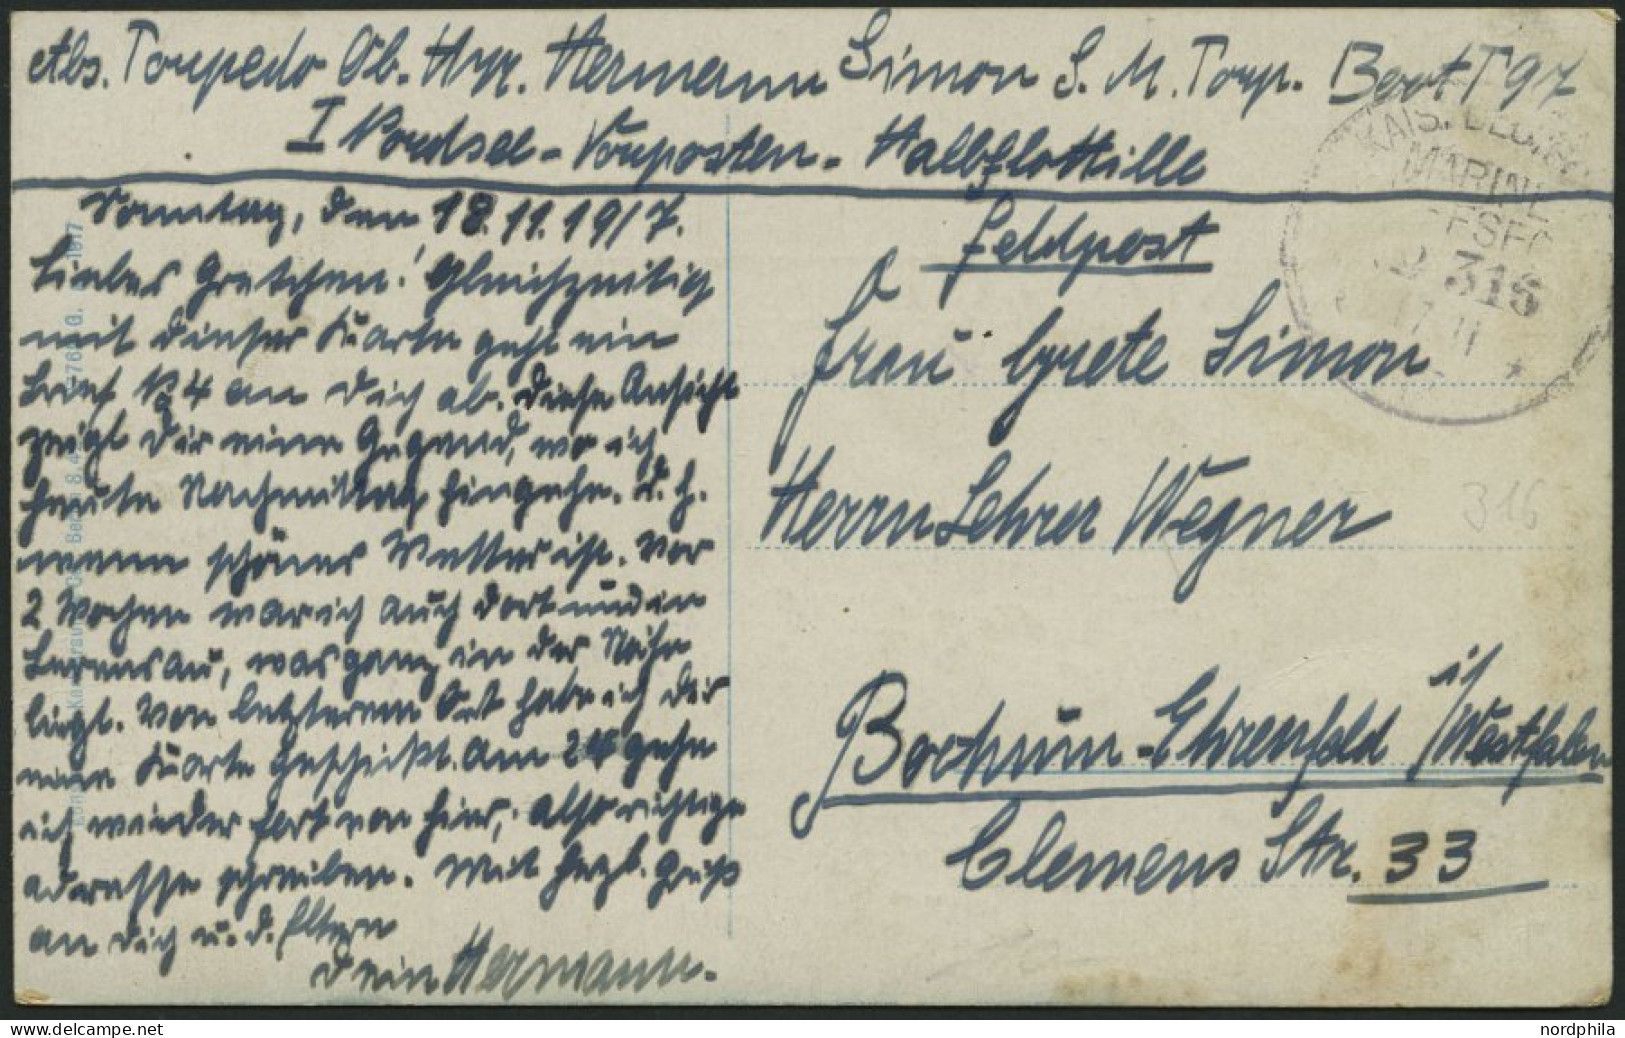 Abs. Torpedo Ob. Hzr. Hermann Simon S. M. Torp. Boot T 97
I Nordsee-Vorposten-Halbflottille
Sonntag, den 18.11.1917.
Liebes Gretchen! Gleichzeitig
mit dieser Karte geht ein
Brief No 4 an Dich ab. Diese Ansicht
zeigt Dir eine Gegend, wo ich
heute Nachmittag hingehe. d. h.
wenn schönes Wetter ist. Vor
2 Wochen war ich auch dort und in
was ganz in der Nähe
liegt. Von letzterem Ort habe ich Dir
eine Karte geschickt. Am 24 gehe
ich wieder fort von hier, also richtige
Adresse schreiben. Mit herzl. Gruß
an Dich u. d. Eltern
Dein Hermann.
Feldpost
Frau Grete Simon
Herrn Lehrer Wegner
Bochum-Ehrenfeld i/Westfalen
Clemens Str. 33
KAIS. DEUTSCHE
MARINE
316
17 11
316
1917
nordphila